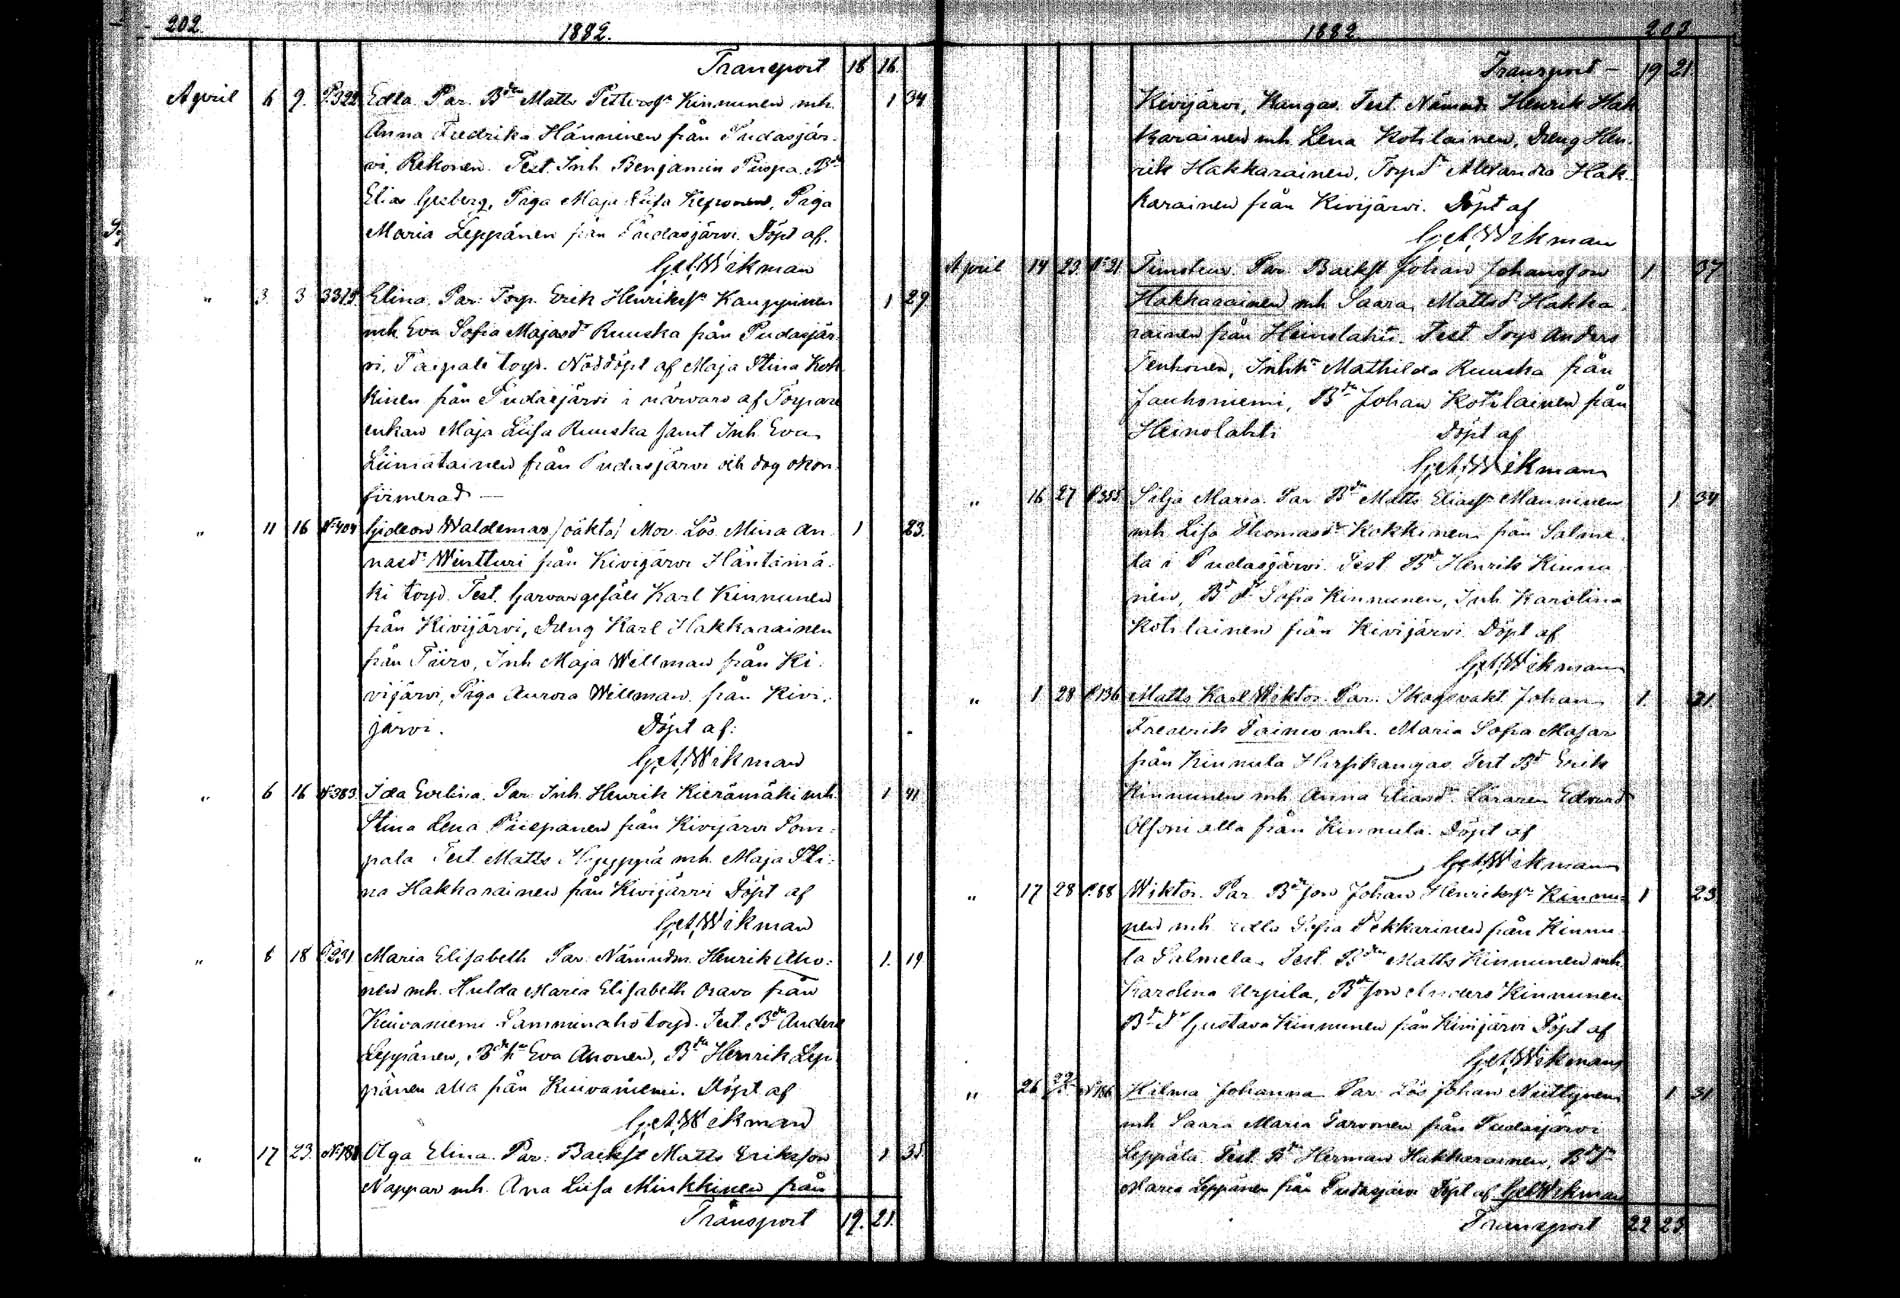 202. 1882.
Transport 18 16.
April 6 9. P.322. Edla. Par. Bdn Matts Pettersso Kinnunen mh. 1 34
Anna Fredrika Hänninen från Pudasjär-
vi, Rekonen. Test. Inh. Benjamin Piispa. Bd
Elias Gezberg, Piga Maja Liisa Keponen, Piga
Maria Leppänen från Pudasjärvi. Döpt af.
G.A.Wikman
" 3. 3 Elina. Par: Torp. Erik Henrikss. Kauppinen 1 29.
mh. Eva Sofia Majasdr Ruuska från Pudasjär-
vi, Taipale torp. Nöddöpt af Maja Stina Kok-
kinen från Pudasjärvi i närvaro af Torpare
enkan Maja Liisa Ruuska samt Inh. Eva
Liimatainen från Pudasjärvi och dog okon-
firmerad —
" 11 16 No404 Gideon Waldemar /oäkta/ Mor. Lös. Mina An- 1 23.
nasdr Wintturi från Kivijärvi Häntämä-
ki torp. Test. Garvargesäll Karl Kinnunen
från Kivijärvi, Dreng Karl Hakkarainen
från Tiiro, Inh Maja Willman från Ki-
vijärvi, Piga Aurora Willman från Kivi-
järvi. Döpt af:
G.A.Wikman
" 6 16 No383. Ida Evelina. Par. Inh. Henrik Kierämäki mh. 1 41
Stina Lena Piispanen från Kivijärvi Pom-
pala Test. Matts Hyyppä mh. Maja Sti-
na Hakkarainen från Kivijärvi Döpt af
G.A.Wikman
" 6 18 P.231 Maria Elisabeth Par. Nämndm. Henrik Aho- 1. 19
nen mh. Hulda Maria Elisabeth Orava från
Kuivaniemi Lamminaho torp. Test. Bdn Anders
Leppänen, Bdh Eva Ahonen, Bdn Henrik Lep-
pänen alla från Kuivaniemi. Döpt af
G.A.Wikman
" 17 23. No188 Olga Elina. Par: Backst Matts Eriksson 1 35
Nappar mh. Ana Liisa Minkkinen från
Transport 19. 21.
1882. 203
Transport – 19 21.
Kivijärvi, Kangas. Test. Nämndr Henrik Hak-
karainen mh. Lena Kotilainen, Dreng Hen-
rik Hakkarainen, Torpdr Alexandra Hak-
karainen från Kivijärvi. Döpt af
G.A.Wikman
April 14 23. No21 Timoteus. Par. Backst Johan Johansson 1. 37
Hakkarainen mh Saara Mattsdr Hakka-
rainen från Heinolahti. Test Torp Anders
Tenhonen, Inhh Mathilda Ruuska från
Jauhoniemi, Bdn Johan Kotilainen från
Heinolahti Döpt af
G.A.Wikman
" 16 27 P.355 Silja Maria. Par Bdn Matts Eliass Manninen 1 34
mh Lisa Thomasdr Kokkinen från Salme-
la i Pudasjärvi. Test Bd Henrik Kinnu-
nen, Bd dr Sofia Kinnunen, Inh. Karolina
Kotilainen från Kivijärvi Döpt af
G.A.Wikman
" 1 28 P.136 Matts Karl Wiktor. Par. Skogsvakt Johan 1. 21.
Frederik Tainio mh. Maria Sofia Majar
från Kinnula Hirsikangas Test Bd Erik
Kinnunen mh Anna Eliasdr Läraren Edvard
Olsoni alla från Kinnula. Döpt af
G.A.Wikman
" 17 28 P.88 Wiktor. Par. Bdeson Johan Henrikss Kinnu- 1 23.
nen mh. Sofia Pekkarinen från Kinnu-
la Salmela. Test. Bdn Matts Kinnunen mh
Karolina Urpila, Bdeson Anders Kinnunen
Bd dr Gustava Kinnunen från Kivijärvi Döpt af
G.A.Wikman
" 26 No166 Hilma Johanna Par. Lös Johan Niittynen 1 31
mh Saara Maria Parvonen från Pudasjärvi
Leppälä. Test. Bdn Herman Hakkarainen, Bd dr
Maria Leppänen från Pudasjärvi Döpt af G.A.Wikman
Transport 22 23